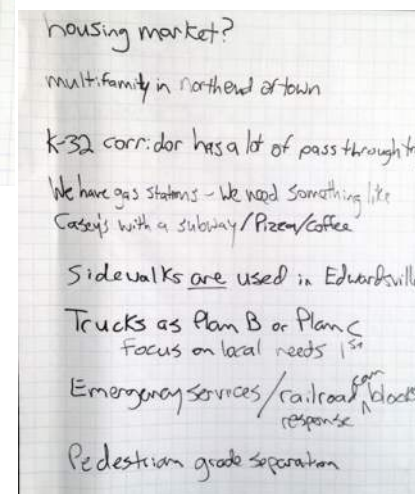 housing market?
multifamily in northend of town
K-32 corridor has a lot of pass through
We have gas stations - We need something like
Casey's with a subway/Pizza/Coffee
Sidewalks are used in Edwardsvill
Trucks as Plan B or Plan C
Focus on local needs 1st
can
Emergency services/railroad ^ block
response
Pedestrian grade separation